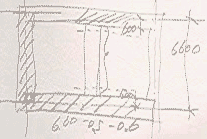 600
6600
600
6.60-0.5-0.6